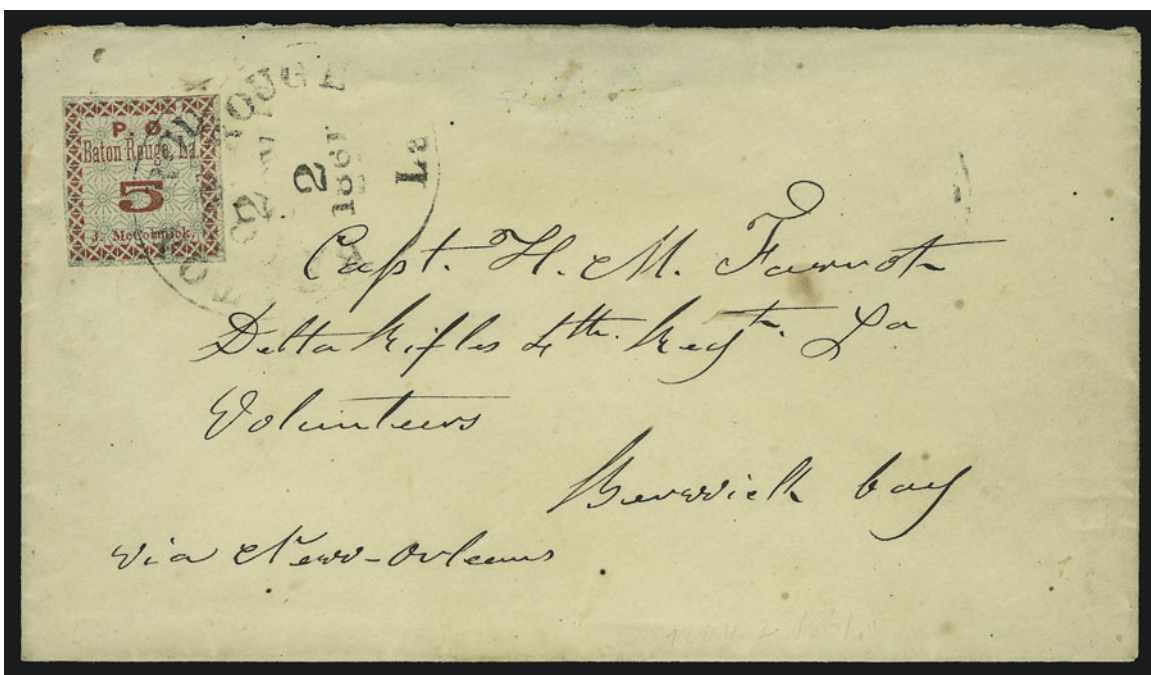 P. O.
Baton Rouge, La.
5
J. McCormick.
BATON ROUGE La
2
1861
Capt. H. M. Favrot
Delta Rifles 4th. Regt. La
Volunteers
Berwick bay
via New-Orleans
Nov. 2 1861.